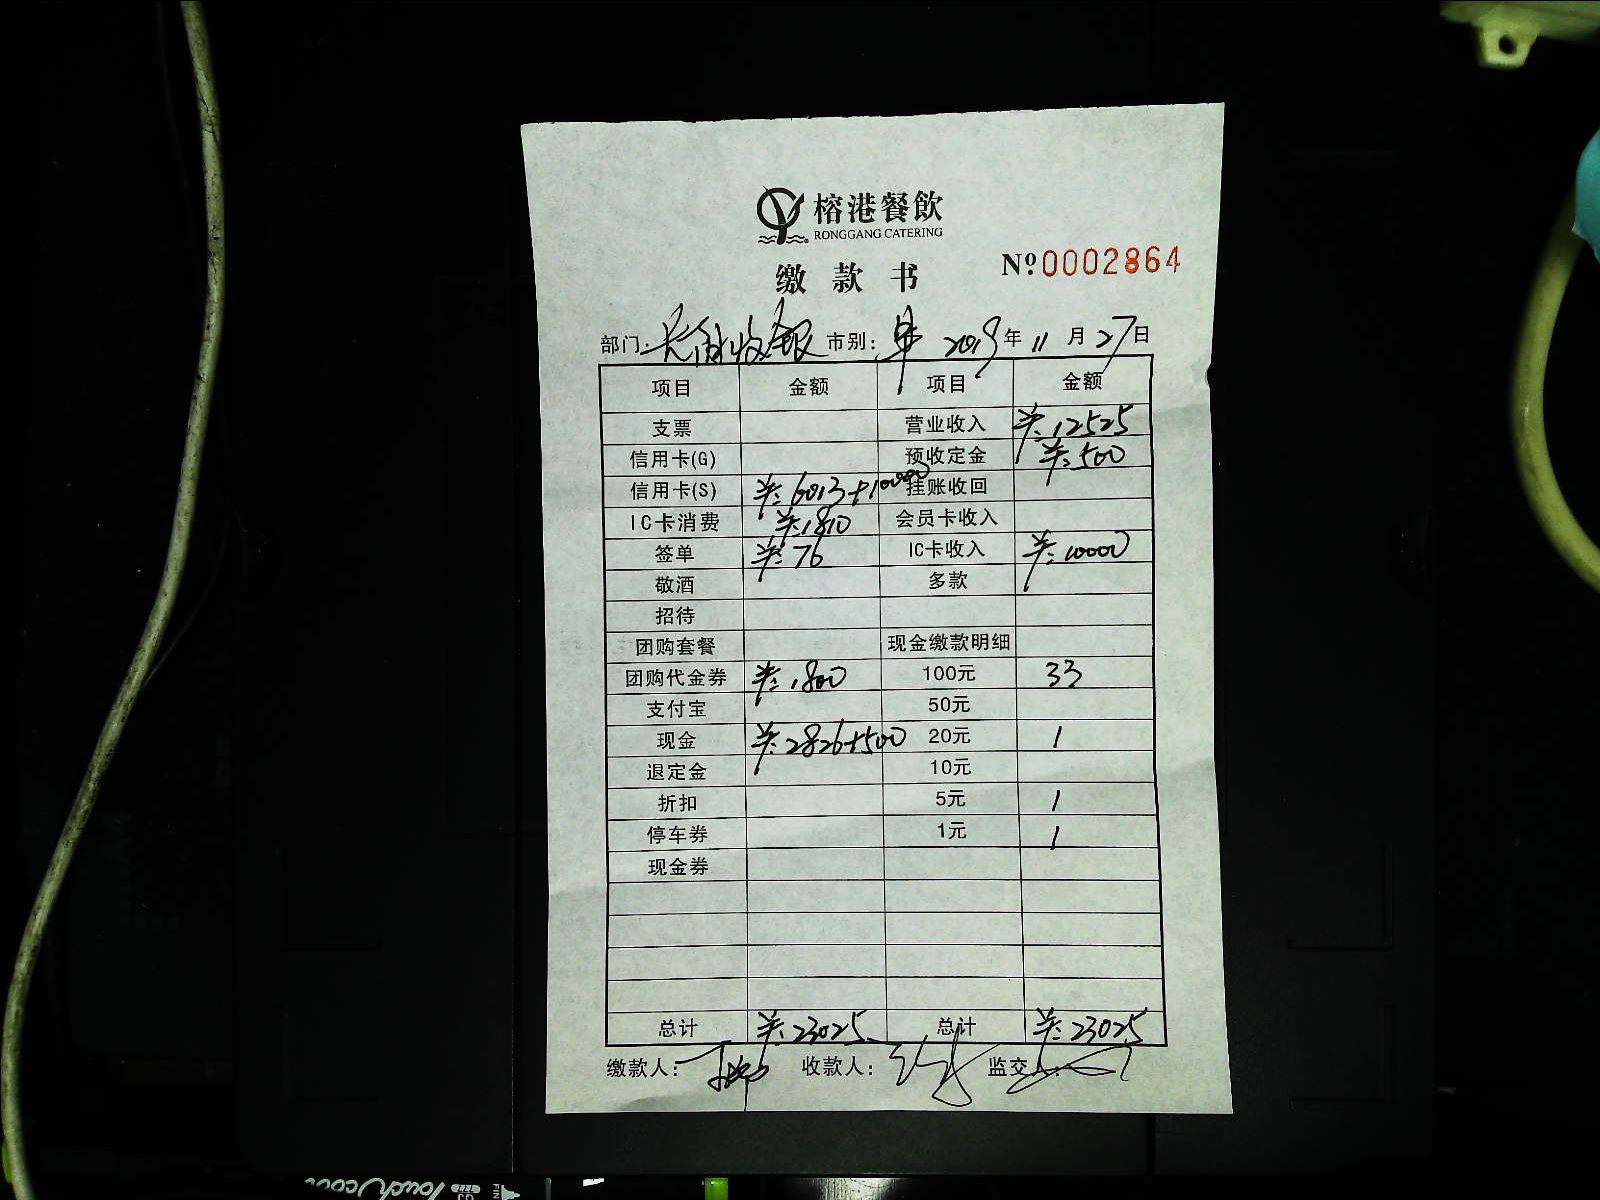 榕港餐飲
RONGGANG CATERING
缴款书 Nº0002864
部门: 收银 市别: 早 2019年11月27日
项目 金额 项目 金额
支票 营业收入 ¥:12525
信用卡(G) 预收定金 ¥:500
信用卡(S) ¥:6013+10000 挂账收回
IC卡消费 ¥:1810 会员卡收入
签单 ¥:76 IC卡收入 ¥:10000
敬酒 多款
招待
团购套餐 现金缴款明细
团购代金券 ¥:1800 100元 33
支付宝 50元
现金 ¥:2826+500 20元 1
退定金 10元
折扣 5元 1
停车券 1元 1
现金券
总计 ¥:23025 总计 ¥:23025
缴款人: 收款人: 监交人:
Touch cool